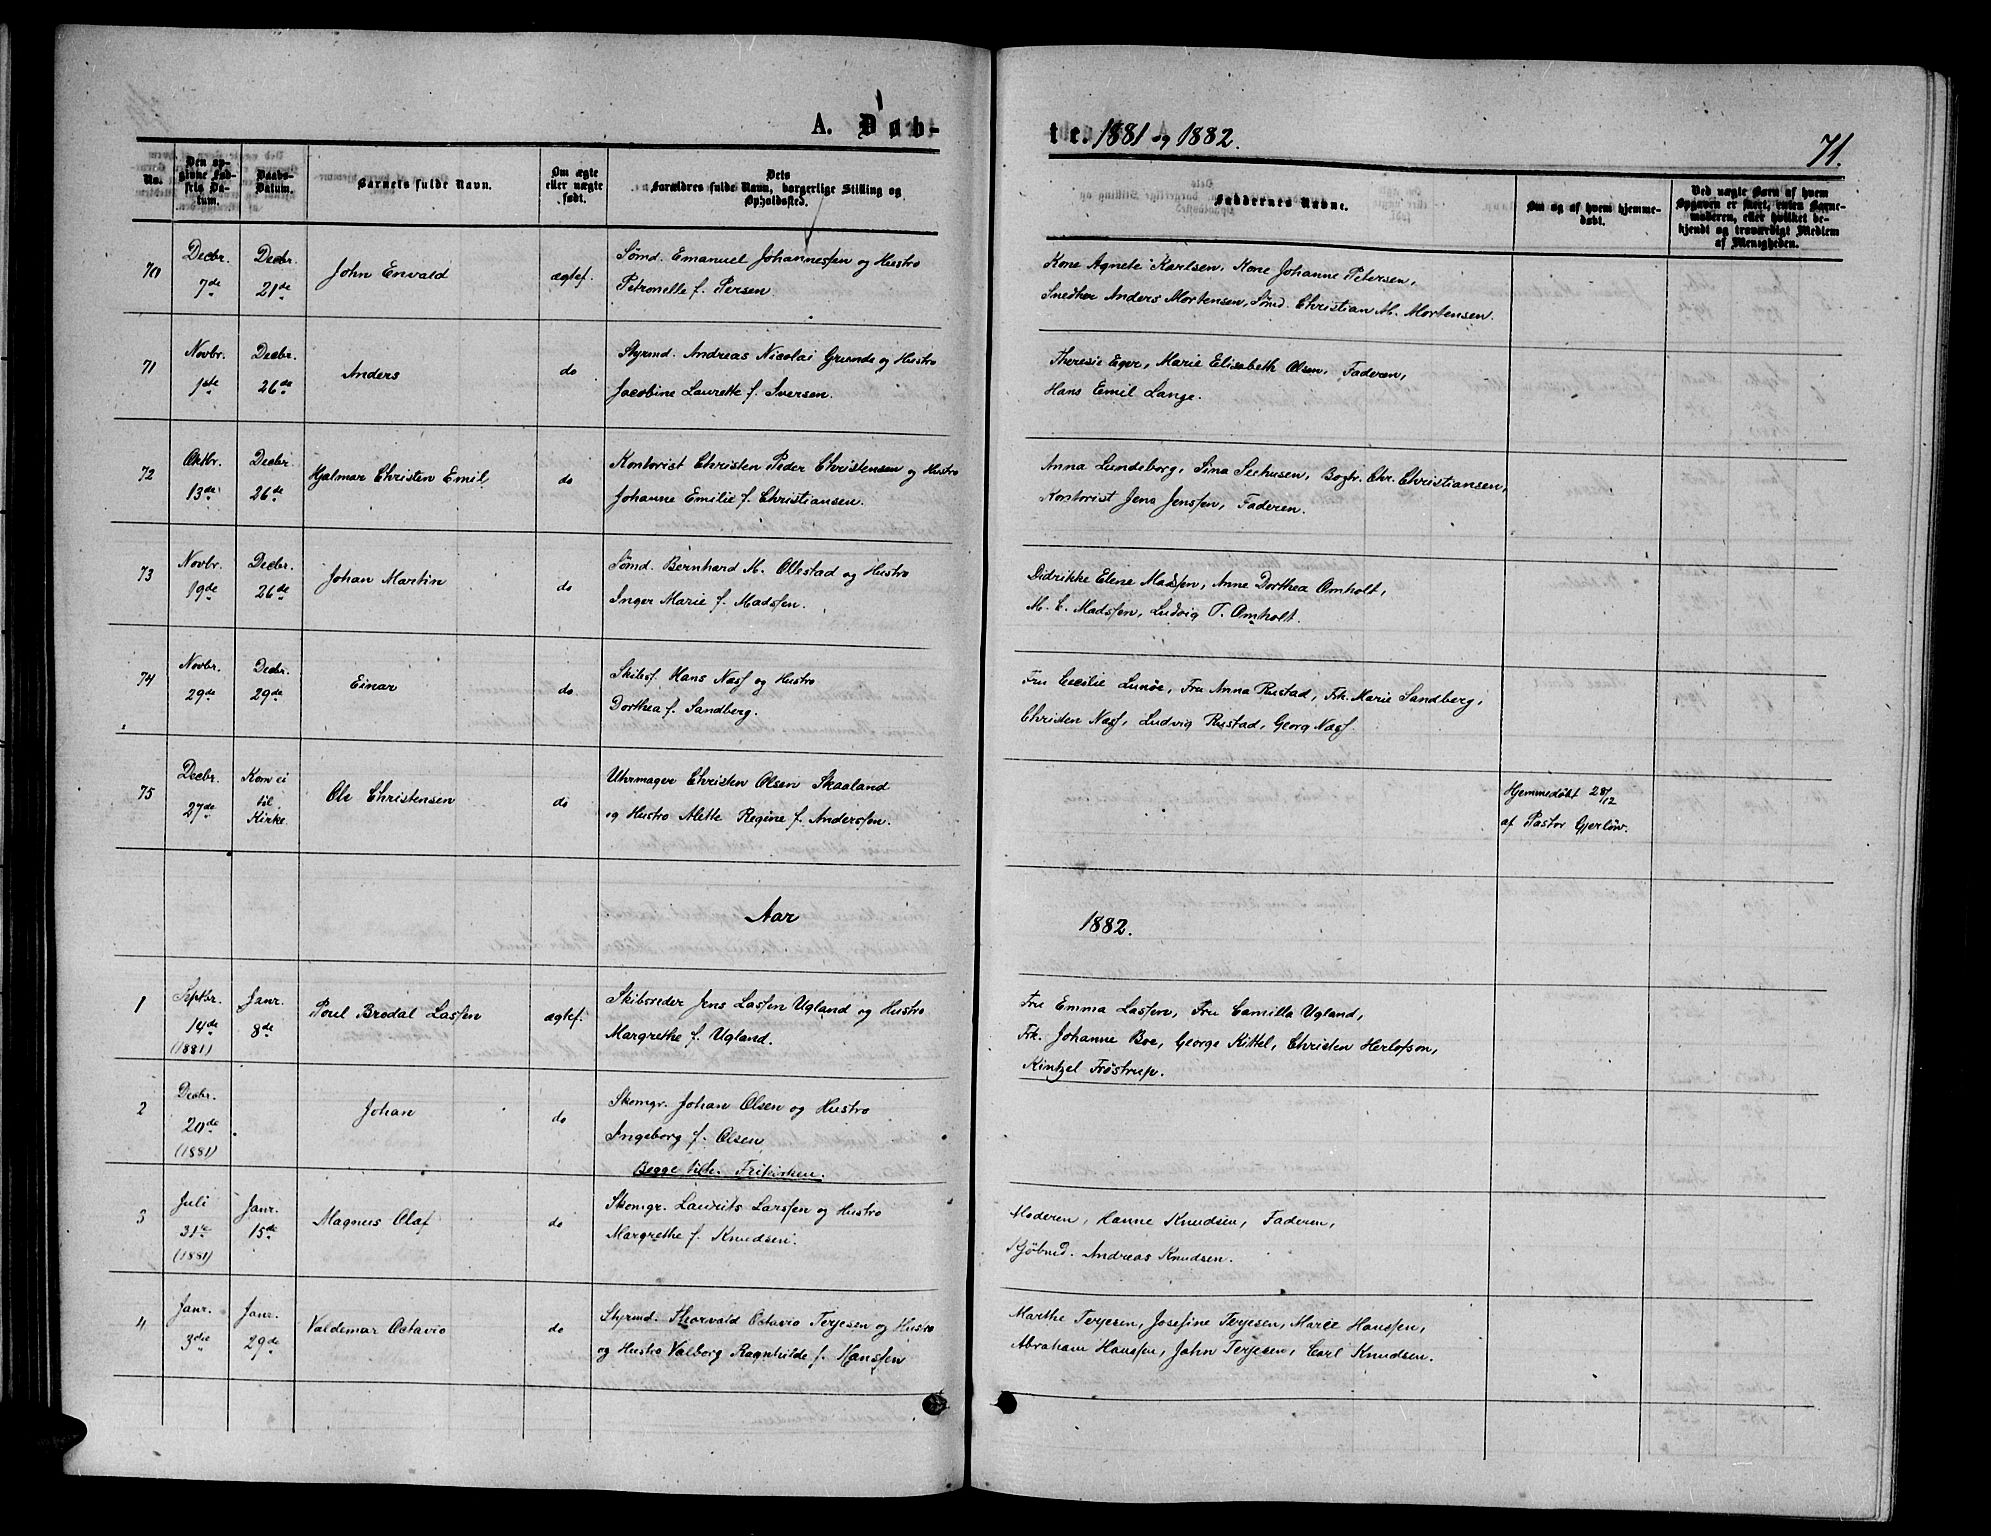 A. Døb-
te. 1881 og 1882.
71.
No.
Den op-
givne Fød-
sels Da-
tum.
Daabs-
Datum.
Barnets fulde Navn.
Om ægte
eller uægte
født.
Dets
Forældres fulde Navn, borgerlige Stilling og
Opholdssted.
Faddernes Navne.
Om og af hvem hjemme-
døbt.
Ved uægte Børn af hvem
Opgaven er skeet, enten Barne-
moderen, eller hvilket be-
kjendt og troværdigt Medlem
af Menigheden.
70
Decbr.
7de
Decbr.
21de
John Envald
ægtef.
Sømd. Emanuel Johannessen og Hustro
Petronelle f. Persen.
Kone Agnete Karlsen, Kone Johanne Petersen,
Snedker Anders Mortensen, Sømd. Christian M. Mortensen.
71
Novbr.
1ste
Decbr.
26de
Anders
do
Styrmd. Andreas Nicolai Grunde og Hustro
Jacobine Laurette f. Iversen.
Theresie Eger, Marie Elisabeth Olsen, Faderen,
Hans Emil Lange.
72
Oktbr.
13de
Decbr.
26de
Hjalmar Christen Emil
do
Kontorist Christen Peder Christensen og Hustro
Johanne Emilie f. Christiansen.
Anna Lundeborg, Sina Seehusen, Bogtr. Chr. Christiansen,
Kontorist Jens Jenssen, Faderen.
73
Novbr.
19de
Decbr.
26de
Johan Martin
do
Sømd. Bernhard M. Ollestad og Hustro
Inger Marie f. Madssen.
Didrikke Elene Madssen, Anne Dorthea Omholt,
M. E. Madssen, Ludvig T. Omholt.
74
Novbr.
29de
Decbr.
29de
Einar
do
Skibsf. Hans Næss og Hustro
Dorthea f. Sandberg.
Fru Cecilie Lunøe, Fru Anna Rustad, Frk. Marie Sandberg,
Christen Næss, Ludvig Rustad, Georg Næss.
75
Decbr.
27de
Kom ei
til
Kirke.
Ole Christensen
do
Uhrmager Christen Olsen Skaaland
og Hustro Alette Regine f. Anderssen.
Hjemmedøbt 28/12
af Pastor Gjerløw.
Aar
1882.
1
Septbr.
14de
(1881)
Janr.
8de
Poul Brodal Lassen
ægtef.
Skibsreder Jens Lassen Ugland og Hustro
Margrethe f. Ugland.
Fru Emma Lassen, Fru Camilla Ugland,
Frk. Johanne Boe, George Kittel, Christen Herlofson,
Kintzel Frøstrup.
2
Decbr.
20de
(1881)
Johan
do
Skomgr. Johan Olsen og Hustro
Ingeborg f. Olsen
Begge tilh. Frikirken.
3
Juli
31te
(1881)
Janr.
15de
Magnus Olaf
do
Skomgr. Laurits Larssen og Hustro
Margrethe f. Knudsen.
Moderen, Hanne Knudsen, Faderen,
Kjøbmd. Andreas Knudsen.
4
Janr.
3die
Janr.
29de
Valdemar Octavio
do
Styrmd. Thorvald Octavio Terjesen og Hustro
og Hustro Valborg Ragnhilde f. Hanssen
Marthe Terjesen, Josefine Terjesen, Marie Hanssen,
Abraham Hanssen, John Terjesen, Carl Knudsen.